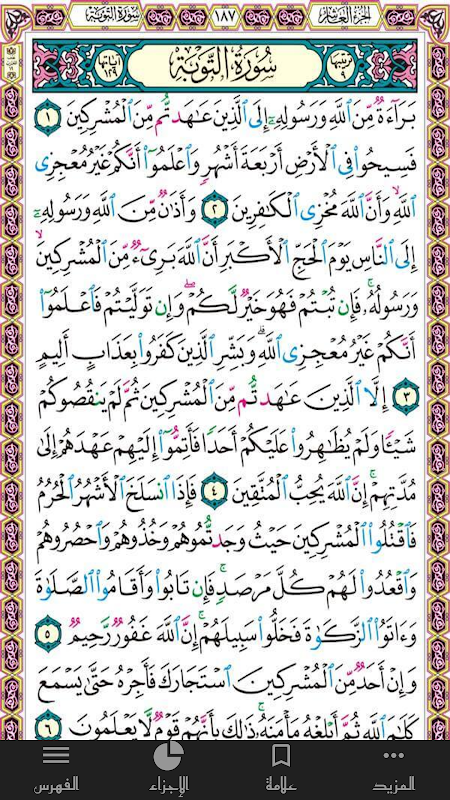 سورة التوبة ١٨٧ الجزء العاشر
ترتيبها ٩ سُورَةُ التَّوْبَة آياتها ١٢٩
بَرَآءَةٌ مِّنَ ٱللَّهِ وَرَسُولِهِۦٓ إِلَى ٱلَّذِينَ عَٰهَدتُّم مِّنَ ٱلْمُشْرِكِينَ ١
فَسِيحُوا۟ فِى ٱلْأَرْضِ أَرْبَعَةَ أَشْهُرٍ وَٱعْلَمُوٓا۟ أَنَّكُمْ غَيْرُ مُعْجِزِى
ٱللَّهِ ۙ وَأَنَّ ٱللَّهَ مُخْزِى ٱلْكَٰفِرِينَ ٢ وَأَذَٰنٌ مِّنَ ٱللَّهِ وَرَسُولِهِۦٓ
إِلَى ٱلنَّاسِ يَوْمَ ٱلْحَجِّ ٱلْأَكْبَرِ أَنَّ ٱللَّهَ بَرِىٓءٌ مِّنَ ٱلْمُشْرِكِينَ ۙ
وَرَسُولُهُۥ ۚ فَإِن تُبْتُمْ فَهُوَ خَيْرٌ لَّكُمْ ۖ وَإِن تَوَلَّيْتُمْ فَٱعْلَمُوٓا۟
أَنَّكُمْ غَيْرُ مُعْجِزِى ٱللَّهِ ۗ وَبَشِّرِ ٱلَّذِينَ كَفَرُوا۟ بِعَذَابٍ أَلِيمٍ
٣ إِلَّا ٱلَّذِينَ عَٰهَدتُّم مِّنَ ٱلْمُشْرِكِينَ ثُمَّ لَمْ يَنقُصُوكُمْ
شَيْـًٔا وَلَمْ يُظَٰهِرُوا۟ عَلَيْكُمْ أَحَدًا فَأَتِمُّوٓا۟ إِلَيْهِمْ عَهْدَهُمْ إِلَىٰ
مُدَّتِهِمْ ۚ إِنَّ ٱللَّهَ يُحِبُّ ٱلْمُتَّقِينَ ٤ فَإِذَا ٱنسَلَخَ ٱلْأَشْهُرُ ٱلْحُرُمُ
فَٱقْتُلُوا۟ ٱلْمُشْرِكِينَ حَيْثُ وَجَدتُّمُوهُمْ وَخُذُوهُمْ وَٱحْصُرُوهُمْ
وَٱقْعُدُوا۟ لَهُمْ كُلَّ مَرْصَدٍ ۚ فَإِن تَابُوا۟ وَأَقَامُوا۟ ٱلصَّلَوٰةَ
وَءَاتَوُا۟ ٱلزَّكَوٰةَ فَخَلُّوا۟ سَبِيلَهُمْ ۚ إِنَّ ٱللَّهَ غَفُورٌ رَّحِيمٌ ٥
وَإِنْ أَحَدٌ مِّنَ ٱلْمُشْرِكِينَ ٱسْتَجَارَكَ فَأَجِرْهُ حَتَّىٰ يَسْمَعَ
كَلَٰمَ ٱللَّهِ ثُمَّ أَبْلِغْهُ مَأْمَنَهُۥ ۚ ذَٰلِكَ بِأَنَّهُمْ قَوْمٌ لَّا يَعْلَمُونَ ٦
المزيد علامة الإجزاء الفهرس